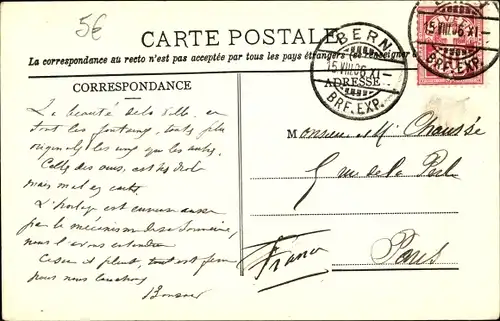 5€
CARTE POSTALE
La correspondance au recto n'est pas acceptée par tous les pays étrangers (se renseigner
CORRESPONDANCE
ADRESSE
BERN
15.VIII.06.XI-
BRF.EXP.
BERN
15.VIII.06.XI-
BRF.EXP.
La beauté de la ville en
sont les fontaines toutes plus
originales les unes que les autres.
Celle des ours est très
mais mal
L'horloge est curieuse aussi
par le mécanisme de sa sonnerie,
nous l'avons entendue
il pleut, tout est fermé
nous nous
Bonsoir
Monsieur et Chaussé
5 rue de la Perle
Paris
France